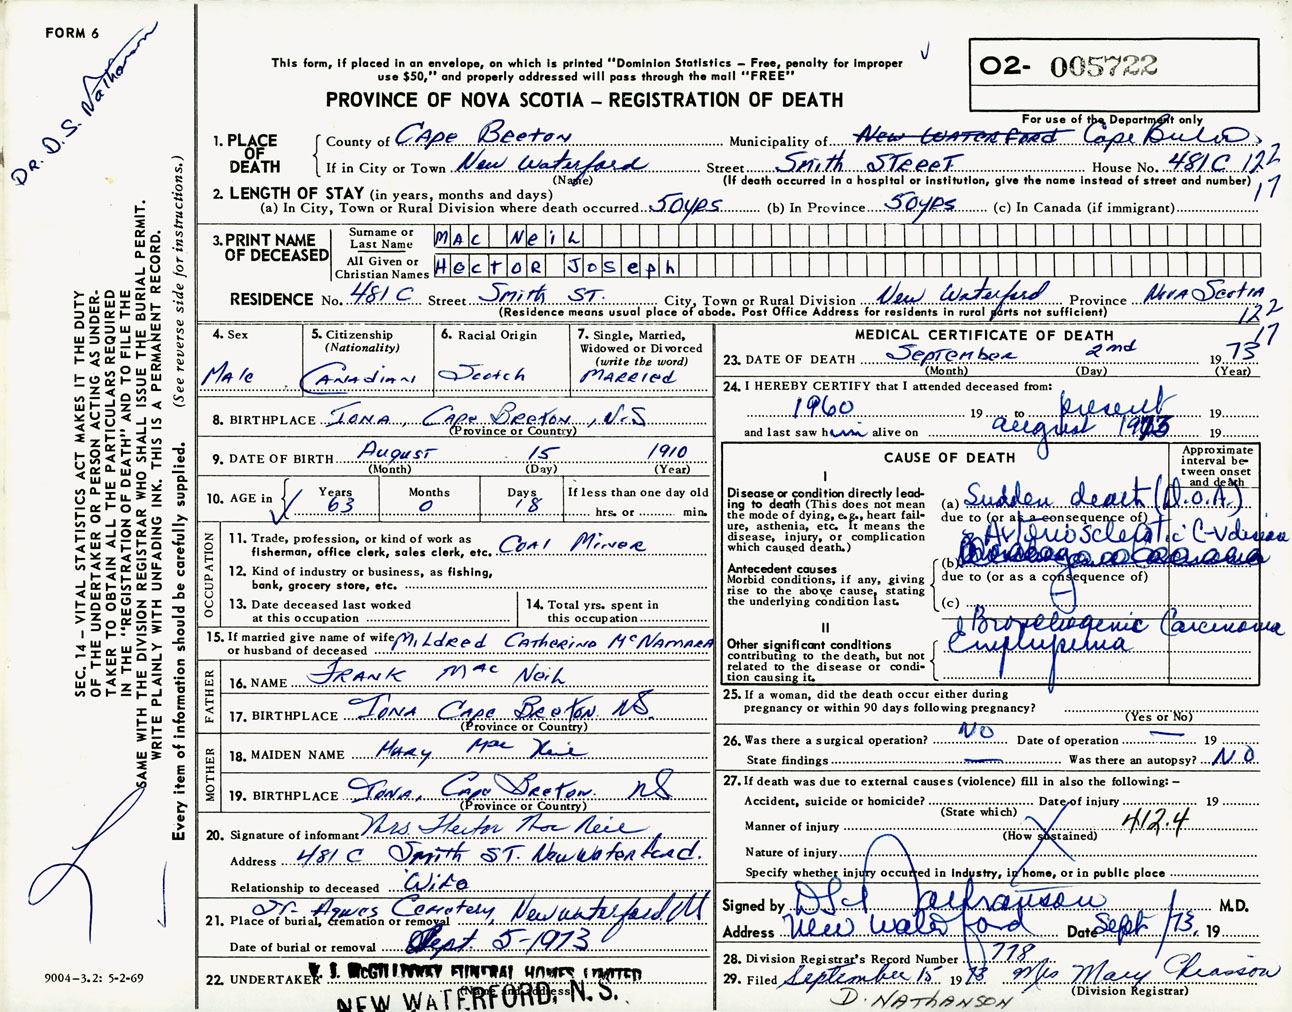 FORM 6
DR. D. S. Nathanson
This form, if placed in an envelope, on which is printed "Dominion Statistics – Free, penalty for improper
use $50," and properly addressed will pass through the mail "FREE"
PROVINCE OF NOVA SCOTIA – REGISTRATION OF DEATH
O2- 005722
For use of the Department only
1. PLACE OF DEATH
County of Cape Breton Municipality of New Waterford Cape Breton
122
If in City or Town New Waterford Street Smith Street House No. 481C
17
(Name) (If death occurred in a hospital or institution, give the name instead of street and number)
2. LENGTH OF STAY (in years, months and days)
(a) In City, Town or Rural Division where death occurred 50yrs (b) In Province 50yrs (c) In Canada (if immigrant)
3. PRINT NAME OF DECEASED
Surname or Last Name Mac Neil
All Given or Christian Names Hector Joseph
RESIDENCE No. 481C Street Smith St. City, Town or Rural Division New Waterford Province Nova Scotia
(Residence means usual place of abode. Post Office Address for residents in rural parts not sufficient)
122
17
4. Sex
Male
5. Citizenship (Nationality)
Canadian
6. Racial Origin
Scotch
7. Single, Married, Widowed or Divorced (write the word)
Married
8. BIRTHPLACE Iona, Cape Breton, N.S
(Province or Country)
9. DATE OF BIRTH August 15 1910
(Month) (Day) (Year)
10. AGE in Years 63 Months 0 Days 18 If less than one day old
hrs. or min.
OCCUPATION
11. Trade, profession, or kind of work as
fisherman, office clerk, sales clerk, etc. Coal Miner
12. Kind of industry or business, as fishing,
bank, grocery store, etc.
13. Date deceased last worked
at this occupation
14. Total yrs. spent in
this occupation
15. If married give name of wife
or husband of deceased Mildred Catherine McNamara
FATHER
16. NAME Frank Mac Neil
17. BIRTHPLACE Iona Cape Breton NS.
(Province or Country)
MOTHER
18. MAIDEN NAME Mary Mac Neil
19. BIRTHPLACE Iona, Cape Breton. NS
(Province or Country)
20. Signature of informant Mrs Hector Mac Neil
Address 481 C Smith St. New Waterford.
Relationship to deceased Wife
21. Place of burial, cremation or removal St. Agnes Cemetery, New Waterford
Date of burial or removal Sept. 5-1973
22. UNDERTAKER V. J. McGillivray FUNERAL HOMES LIMITED
(Name and address)
NEW WATERFORD, N. S.
MEDICAL CERTIFICATE OF DEATH
23. DATE OF DEATH September 2nd 1973
(Month) (Day) (Year)
24. I HEREBY CERTIFY that I attended deceased from:
1960 19 to present 19
and last saw him alive on august 1973 19
CAUSE OF DEATH
Approximate interval between onset and death
I
Disease or condition directly leading to death (This does not mean the mode of dying, e.g., heart failure, asthenia, etc. It means the disease, injury, or complication which caused death.)
(a) Sudden death (D.O.A.)
due to (or as a consequence of)
Arteriosclerotic C-V disease
Antecedent causes
Morbid conditions, if any, giving rise to the above cause, stating the underlying condition last.
(b)
due to (or as a consequence of)
(c)
II
Other significant conditions
contributing to the death, but not related to the disease or condition causing it.
Bronchogenic Carcinoma
Emphysema
25. If a woman, did the death occur either during
pregnancy or within 90 days following pregnancy?
(Yes or No)
26. Was there a surgical operation? NO Date of operation — 19
State findings — Was there an autopsy? NO
27. If death was due to external causes (violence) fill in also the following:–
Accident, suicide or homicide? Date of injury 19
(State which)
Manner of injury 412.4
(How sustained)
Nature of injury
Specify whether injury occurred in industry, in home, or in public place
Signed by D S Nathanson M.D.
Address New Waterford Date Sept /73. 19
28. Division Registrar's Record Number 778
29. Filed September 15 1973 Mrs Mary Chiasson
(Division Registrar)
D. NATHANSON
SEC. 14 – VITAL STATISTICS ACT MAKES IT THE DUTY
OF THE UNDERTAKER OR PERSON ACTING AS UNDER-
TAKER TO OBTAIN ALL THE PARTICULARS REQUIRED
IN THE "REGISTRATION OF DEATH" AND TO FILE THE
SAME WITH THE DIVISION REGISTRAR WHO SHALL ISSUE THE BURIAL PERMIT.
WRITE PLAINLY WITH UNFADING INK. THIS IS A PERMANENT RECORD.
Every item of information should be carefully supplied. (See reverse side for instructions.)
9004-3.2: 5-2-69